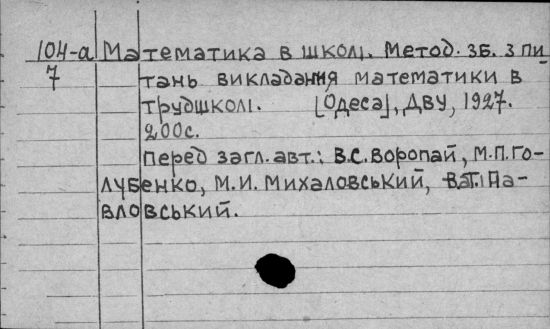 104-а Математика в школі. Метод. зб. з пи-
7 тань викладання математики в
трудшколі. [Одеса], ДВУ, 1927.
200с.
Перед загл. авт.: В.С. Воропай, М.П. Го-
лубенко, М.И. Михаловський, Па-
вловський.